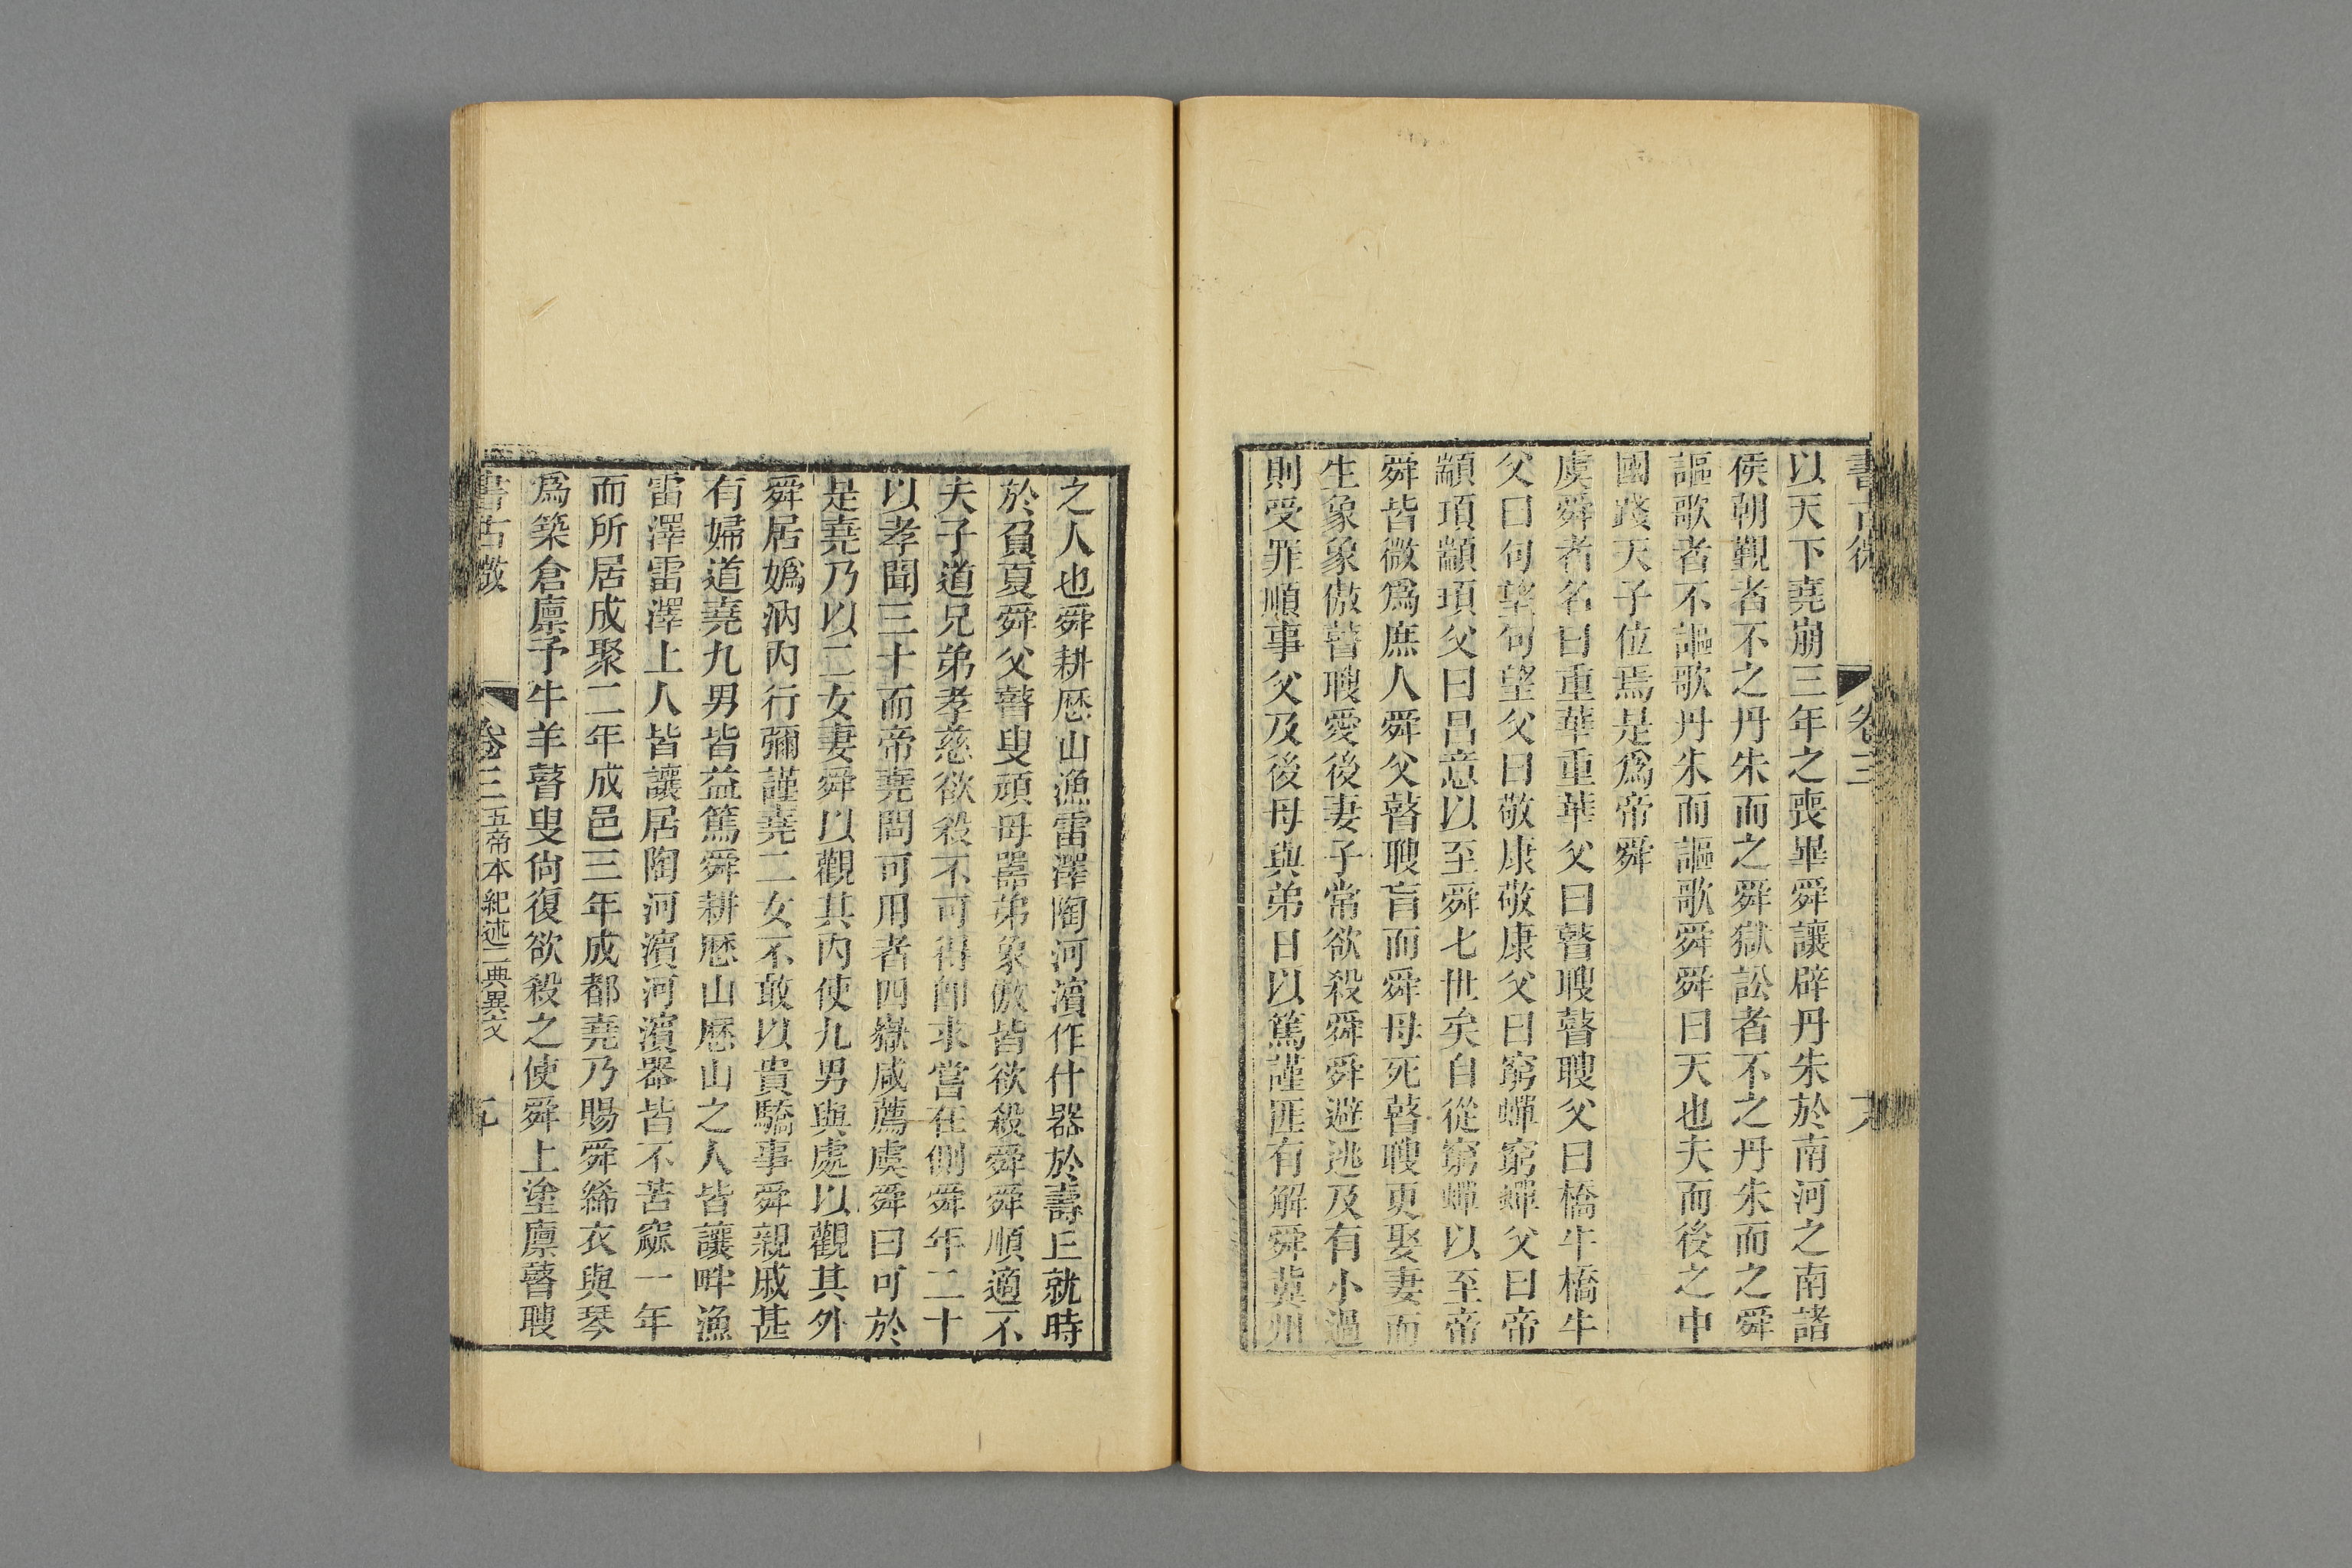 書古微
卷三
以天下堯崩三年之喪畢舜讓辟丹朱於南河之南諸
侯朝覲者不之丹朱而之舜獄訟者不之丹朱而之舜
謳歌者不謳歌丹朱而謳歌舜舜曰天也夫而後之中
國踐天子位焉是爲帝舜
虞舜者名曰重華重華父曰瞽瞍瞽瞍父曰橋牛橋牛
父曰句望句望父曰敬康敬康父曰窮蟬窮蟬父曰帝
顓頊顓頊父曰昌意以至舜七世矣自從窮蟬以至帝
舜皆微爲庶人舜父瞽瞍盲而舜母死瞽瞍更娶妻而
生象象傲瞽瞍愛後妻子常欲殺舜舜避逃及有小過
則受罪順事父及後母與弟日以篤謹匪有解舜冀州
之人也舜耕歷山漁雷澤陶河濱作什器於壽丘就時
於負夏舜父瞽叟頑母嚚弟象傲皆欲殺舜舜順適不
失子道兄弟孝慈欲殺不可得卽求嘗在側舜年二十
以孝聞三十而帝堯問可用者四嶽咸薦虞舜曰可於
是堯乃以二女妻舜以觀其內使九男與處以觀其外
舜居嬀汭內行彌謹堯二女不敢以貴驕事舜親戚甚
有婦道堯九男皆益篤舜耕歷山歷山之人皆讓畔漁
雷澤雷澤上人皆讓居陶河濱河濱器皆不苦窳一年
而所居成聚二年成邑三年成都堯乃賜舜絺衣與琴
爲築倉廩予牛羊瞽叟尙復欲殺之使舜上塗廩瞽瞍
書古微
卷三 五帝本紀述二典異文